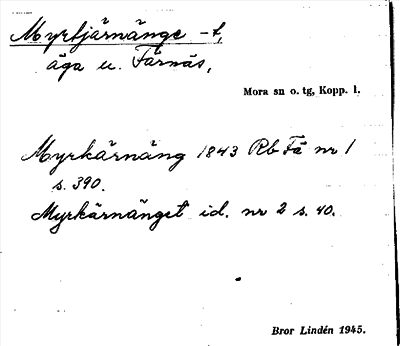 Myrtjärnänge -t,
äga u. Färnäs,
Mora sn o. tg, Kopp. l.
Myrkärnäng 1843 Rb Fä nr 1
s. 390.
Myrkärnänget id. nr 2 s. 40.
Bror Lindén 1945.